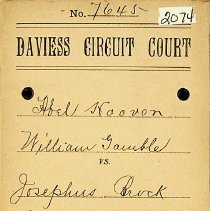 No. 7645
2074
DAVIESS CIRCUIT COURT
Abel Hoover
William Gamble
vs.
Josephus Brock